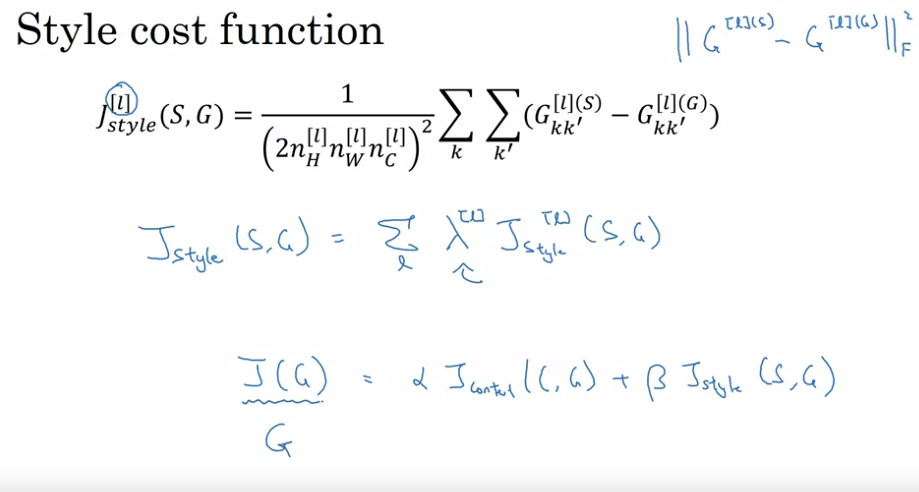 Style cost function
‖ G^{[l](S)} − G^{[l](G)} ‖_F^2
J_{style}^{[l]}(S, G) = \frac{1}{(2n_H^{[l]} n_W^{[l]} n_C^{[l]})^2} ∑_k ∑_{k'} (G_{kk'}^{[l](S)} − G_{kk'}^{[l](G)})
J_{style}(S,G) = ∑_l λ^{[l]} J_{style}^{[l]}(S,G)
J(G) = α J_{content}(C,G) + β J_{style}(S,G)
G